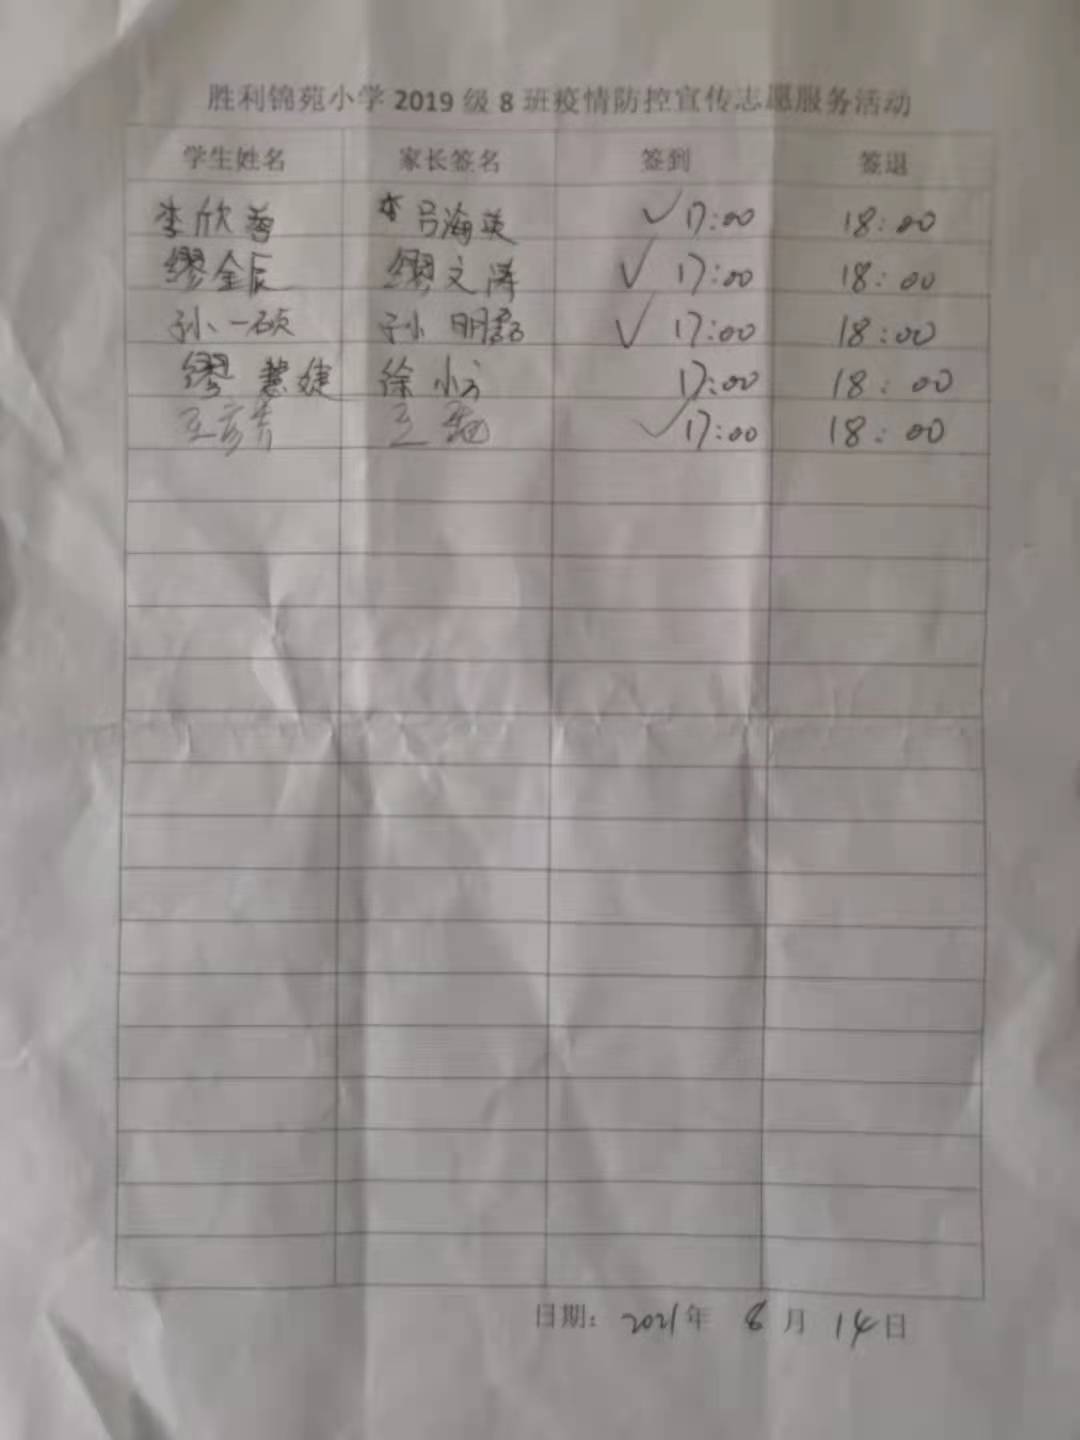 胜利锦苑小学2019级8班疫情防控宣传志愿服务活动
学生姓名 家长签名 签到 签退
李欣蓉 吕海英 ✓17:00 18:00
缪金辰 缪文涛 ✓17:00 18:00
孙一硕 孙明磊 ✓17:00 18:00
缪慧婕 徐小方 17:00 18:00
王彦 王 ✓17:00 18:00
日期：2021年8月14日